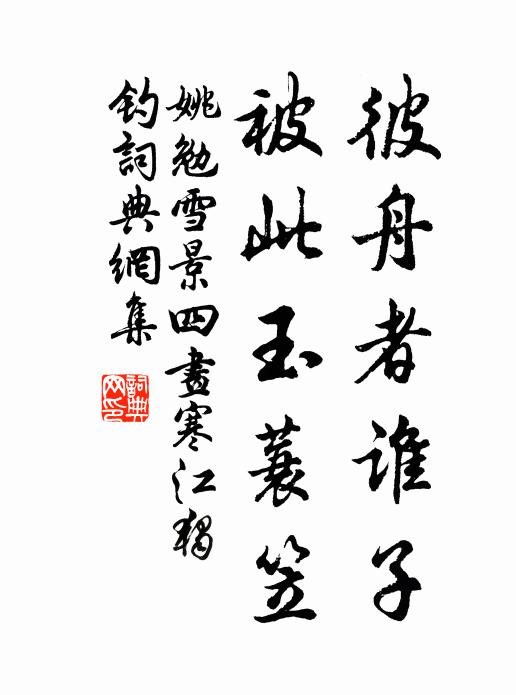 彼舟者谁子
被此玉蓑笠
姚勉雪景四畫寒江独
钓詞典網集
詞典
网印